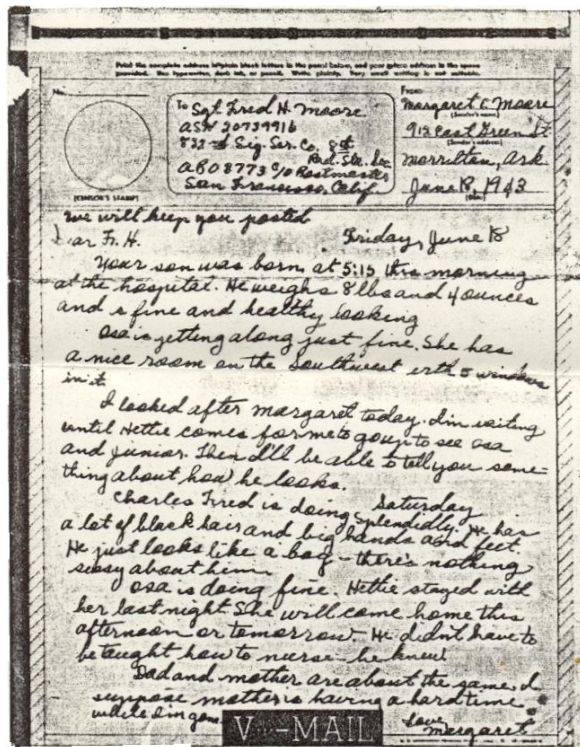 Print the complete address in plain block letters in the panel below, and your return address in the space
provided. Use typewriter, dark ink, or pencil. Write plainly. Very small writing is not suitable.
No.
To Sgt Fred H. Moore
ASN 20739916
832nd Sig. Ser. Co. 8st
Rad. Sta. Sec
APO 8773 c/o Postmaster
San Francisco, Calif
[CENSOR'S STAMP]
From
Margaret E. Moore
(Sender's name)
913 East Green St
(Sender's address)
Morrilton, Ark
June 18, 1943
(Date)
we will keep you posted
Dear Fr. H. Friday, June 18
Your son was born at 5:15 this morning
at the hospital. He weighs 8 lbs and 4 ounces
and is fine and healthy looking
Osa is getting along just fine. She has
a nice room on the southwest with 5 windows
in it.
I looked after Margaret today. I'm waiting
until Hettie comes for me to go up to see Osa
and Junior. Then I'll be able to tell you some-
thing about how he looks.
Saturday
Charles Fred is doing splendidly. He has
a lot of black hair and big hands and feet.
He just looks like a boy - there's nothing
sissy about him.
Osa is doing fine. Hettie stayed with
her last night. She will come home this
afternoon or tomorrow. He didn't have to
be taught how to nurse - he knew
Dad and mother are about the same. I
suppose mother is having a hard time
while I'm gone.
Love
Margaret
V--MAIL